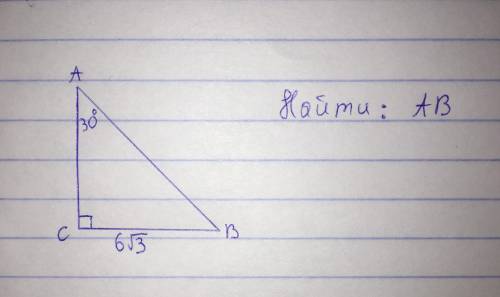 A
30°
Найти: AB
C
6√3
B